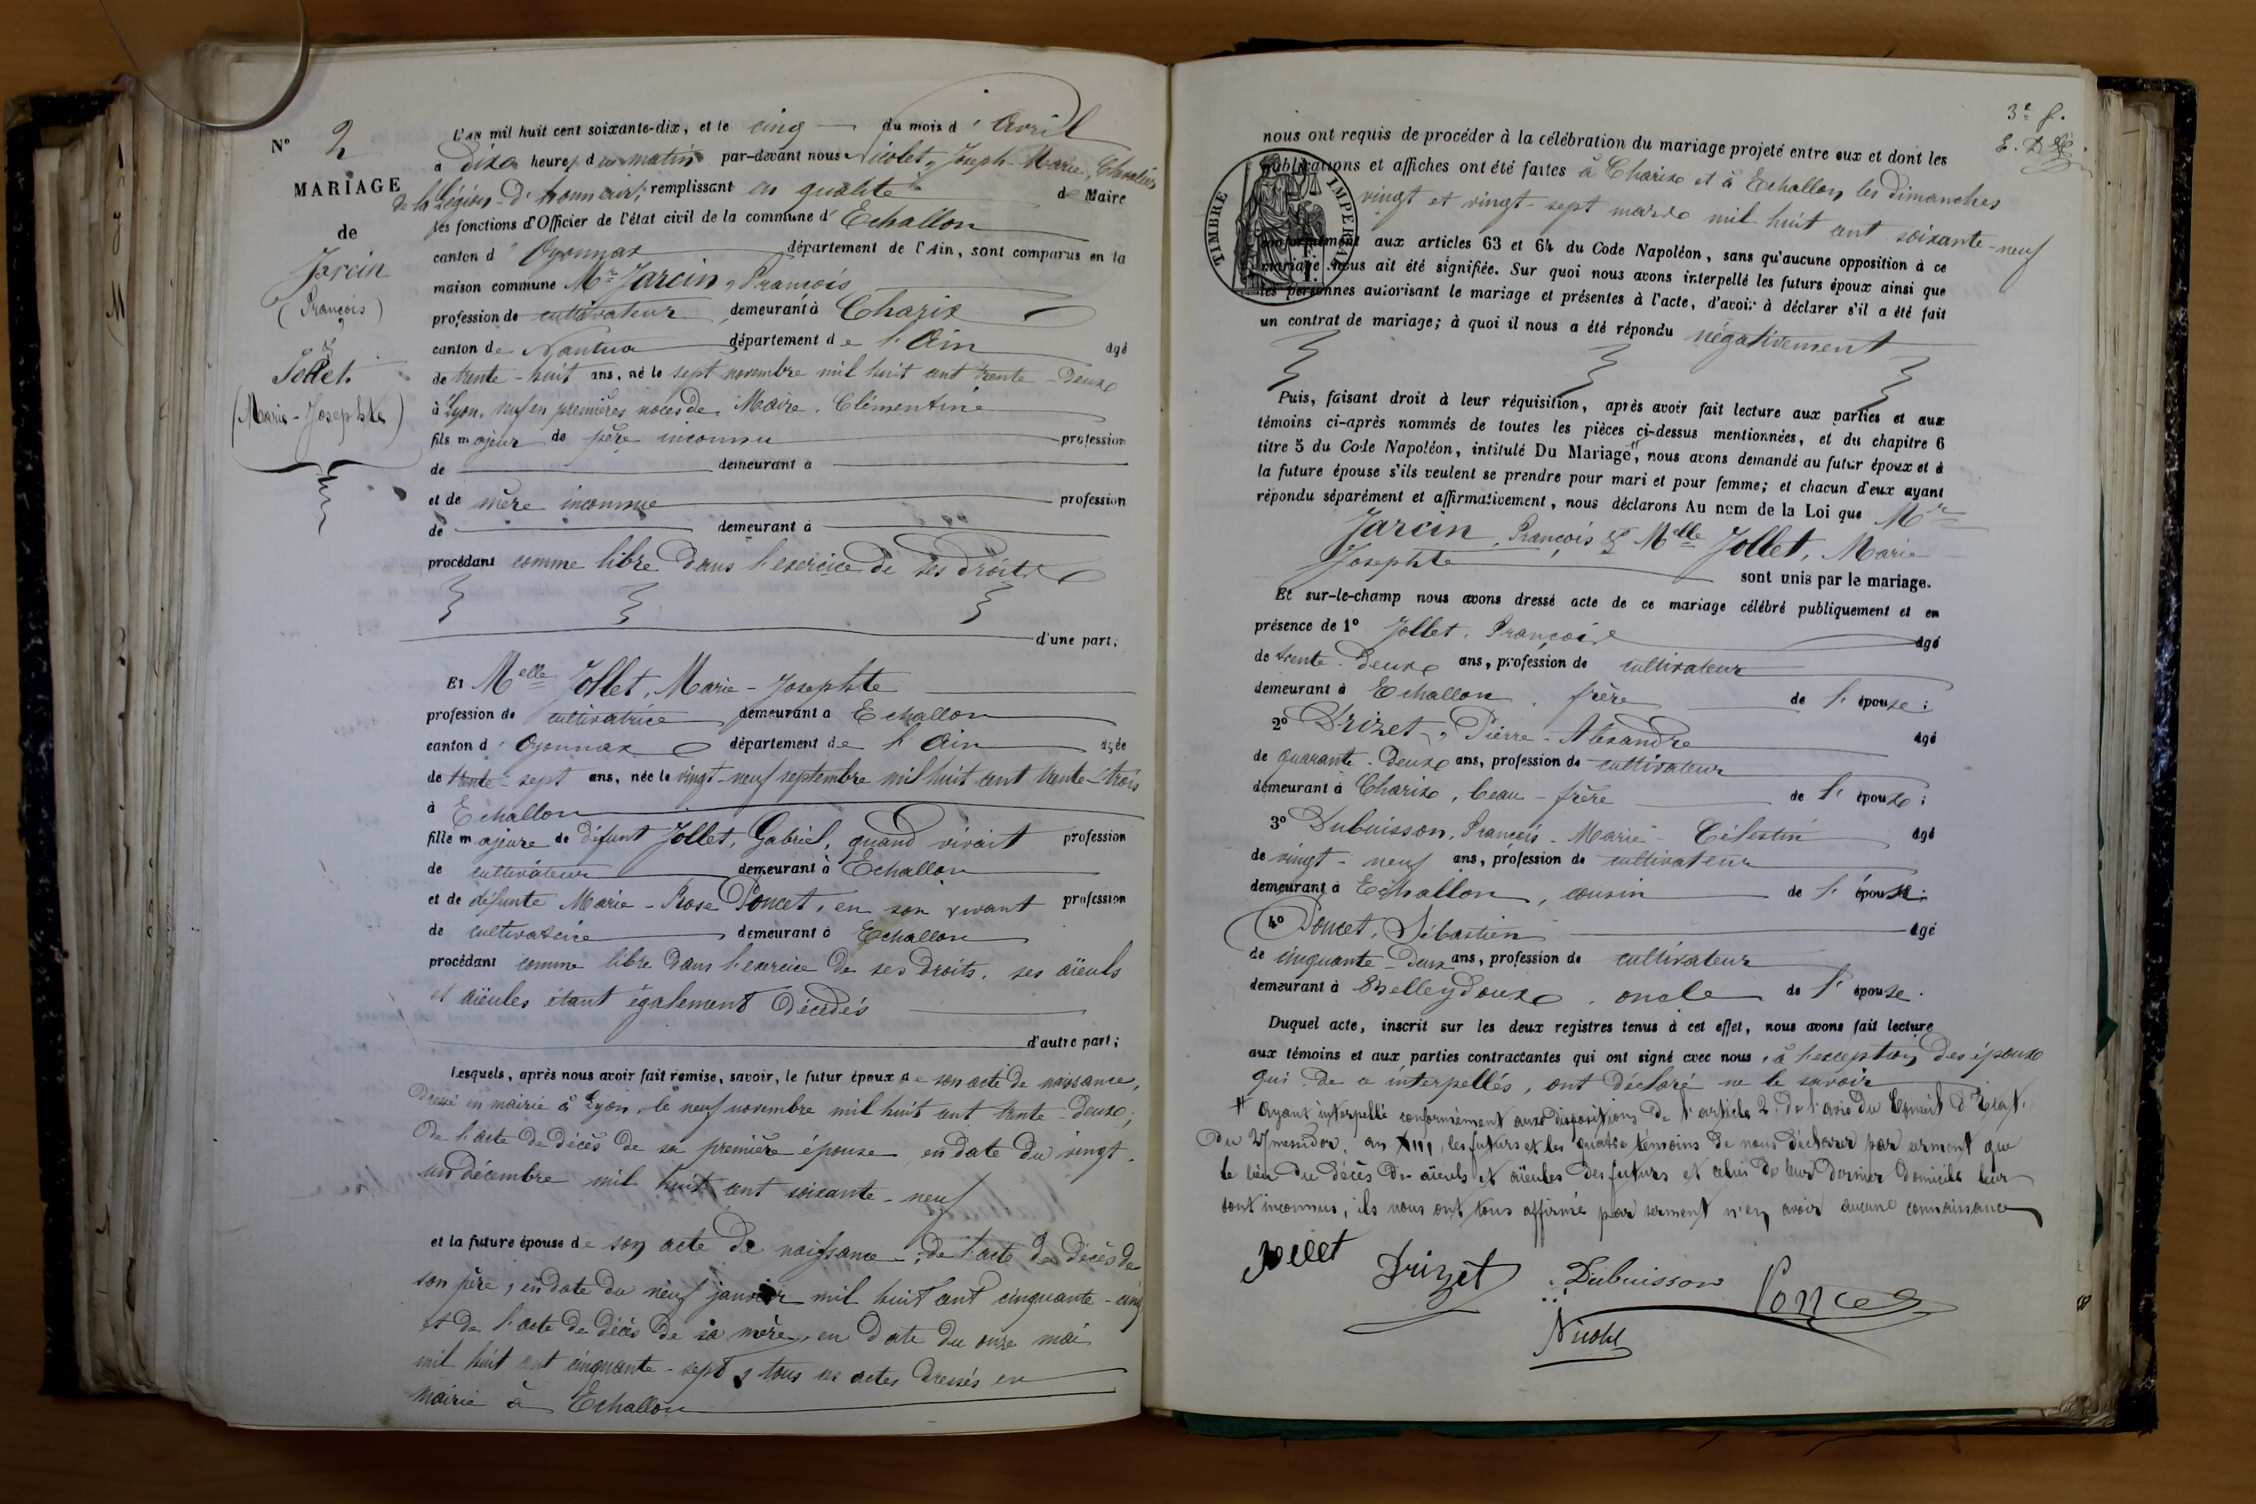 N° 2
MARIAGE
de
Jarcin
(François)
&
Jollet
(Marie-Josephte)
L'an mil huit cent soixante-dix, et le cinq du mois d'Avril
à dix heures du matin par-devant nous Nicolet, Joseph-Marie, Chevalier
de la Légion-d'honneur, remplissant en qualité de Maire
les fonctions d'Officier de l'état civil de la commune d'Echallon
canton d'Oyonnax département de l'Ain, sont comparus en la
maison commune Mr Jarcin, François
profession de cultivateur demeurant à Charix
canton de Nantua département de l'Ain agé
de trente-huit ans, né le sept novembre mil huit cent trente-deux
à Lyon, veuf en premières noces de Maire, Clémentine
fils majeur de père inconnu profession
de demeurant à
et de mère inconnue profession
de demeurant à
procédant comme libre dans l'exercice de ses droits
d'une part;
Et Melle Jollet, Marie-Josephte
profession de cultivatrice demeurant à Echallon
canton d'Oyonnax département de l'Ain agée
de trente-sept ans, née le vingt-neuf septembre mil huit cent trente-trois
à Echallon
fille majeure de défunt Jollet, Gabriel, quand vivait profession
de cultivateur demeurant à Echallon
et de défunte Marie-Rose Poncet, en son vivant profession
de cultivatrice demeurant à Echallon
procédant comme libre dans l'exercice de ses droits, ses aïeuls
et aïeules étant également décédés
d'autre part;
Lesquels, après nous avoir fait remise, savoir, le futur époux de son acte de naissance,
dressé en mairie à Lyon, le neuf novembre mil huit cent trente-deux;
de l'acte de décès de sa première épouse en date du vingt-
un décembre mil huit cent soixante-neuf
et la future épouse de son acte de naissance; de l'acte de décès de
son père, en date du neuf janvier mil huit cent cinquante-cinq
et de l'acte de décès de sa mère, en date du onze mai
mil huit cent cinquante-sept, tous ces actes dressés en
mairie à Echallon
3e f.
nous ont requis de procéder à la célébration du mariage projeté entre eux et dont les
publications et affiches ont été faites à Charix et à Echallon, les dimanches
vingt et vingt-sept mars mil huit cent soixante-neuf
TIMBRE IMPERIAL
conformément aux articles 63 et 64 du Code Napoléon, sans qu'aucune opposition à ce
mariage nous ait été signifiée. Sur quoi nous avons interpellé les futurs époux ainsi que
les personnes autorisant le mariage et présentes à l'acte, d'avoir à déclarer s'il a été fait
un contrat de mariage; à quoi il nous a été répondu négativement
Puis, faisant droit à leur réquisition, après avoir fait lecture aux parties et aux
témoins ci-après nommés de toutes les pièces ci-dessus mentionnées, et du chapitre 6
titre 5 du Code Napoléon, intitulé Du Mariage, nous avons demandé au futur époux et à
la future épouse s'ils veulent se prendre pour mari et pour femme; et chacun d'eux ayant
répondu séparément et affirmativement, nous déclarons Au nom de la Loi que Mr
Jarcin, François & Melle Jollet, Marie
Josephte sont unis par le mariage.
Et sur-le-champ nous avons dressé acte de ce mariage célébré publiquement et en
présence de 1° Jollet, François agé
de trente-deux ans, profession de cultivateur
demeurant à Echallon, frère de l'épouse;
2° Drizet, Pierre-Alexandre agé
de quarante-deux ans, profession de cultivateur
demeurant à Charix, beau-frère de l'épouse;
3° Dubuisson, François-Marie-Célestin agé
de vingt-neuf ans, profession de cultivateur
demeurant à Echallon, cousin de l'épouse;
4° Poncet, Sébastien agé
de cinquante-deux ans, profession de cultivateur
demeurant à Belleydoux, oncle de l'épouse.
Duquel acte, inscrit sur les deux registres tenus à cet effet, nous avons fait lecture
aux témoins et aux parties contractantes qui ont signé avec nous, à l'exception des époux
qui de ce interpellés, ont déclaré ne le savoir
# ayant interpellé conformément aux dispositions de l'article 2 de l'avis du Conseil d'Etat
du 4 messidor, an XIII, les futurs et les quatre témoins de nous déclarer par serment que
le lieu du décès des aïeuls et aïeules des futurs et celui de leur dernier domicile leur
sont inconnus, ils nous ont tous affirmé par serment n'en avoir aucune connaissance
Jollet Drizet Dubuisson Poncet
Nicolet